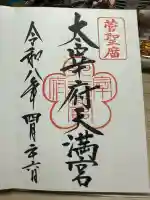 菅聖廟
太宰府天満宮
令和八年四月